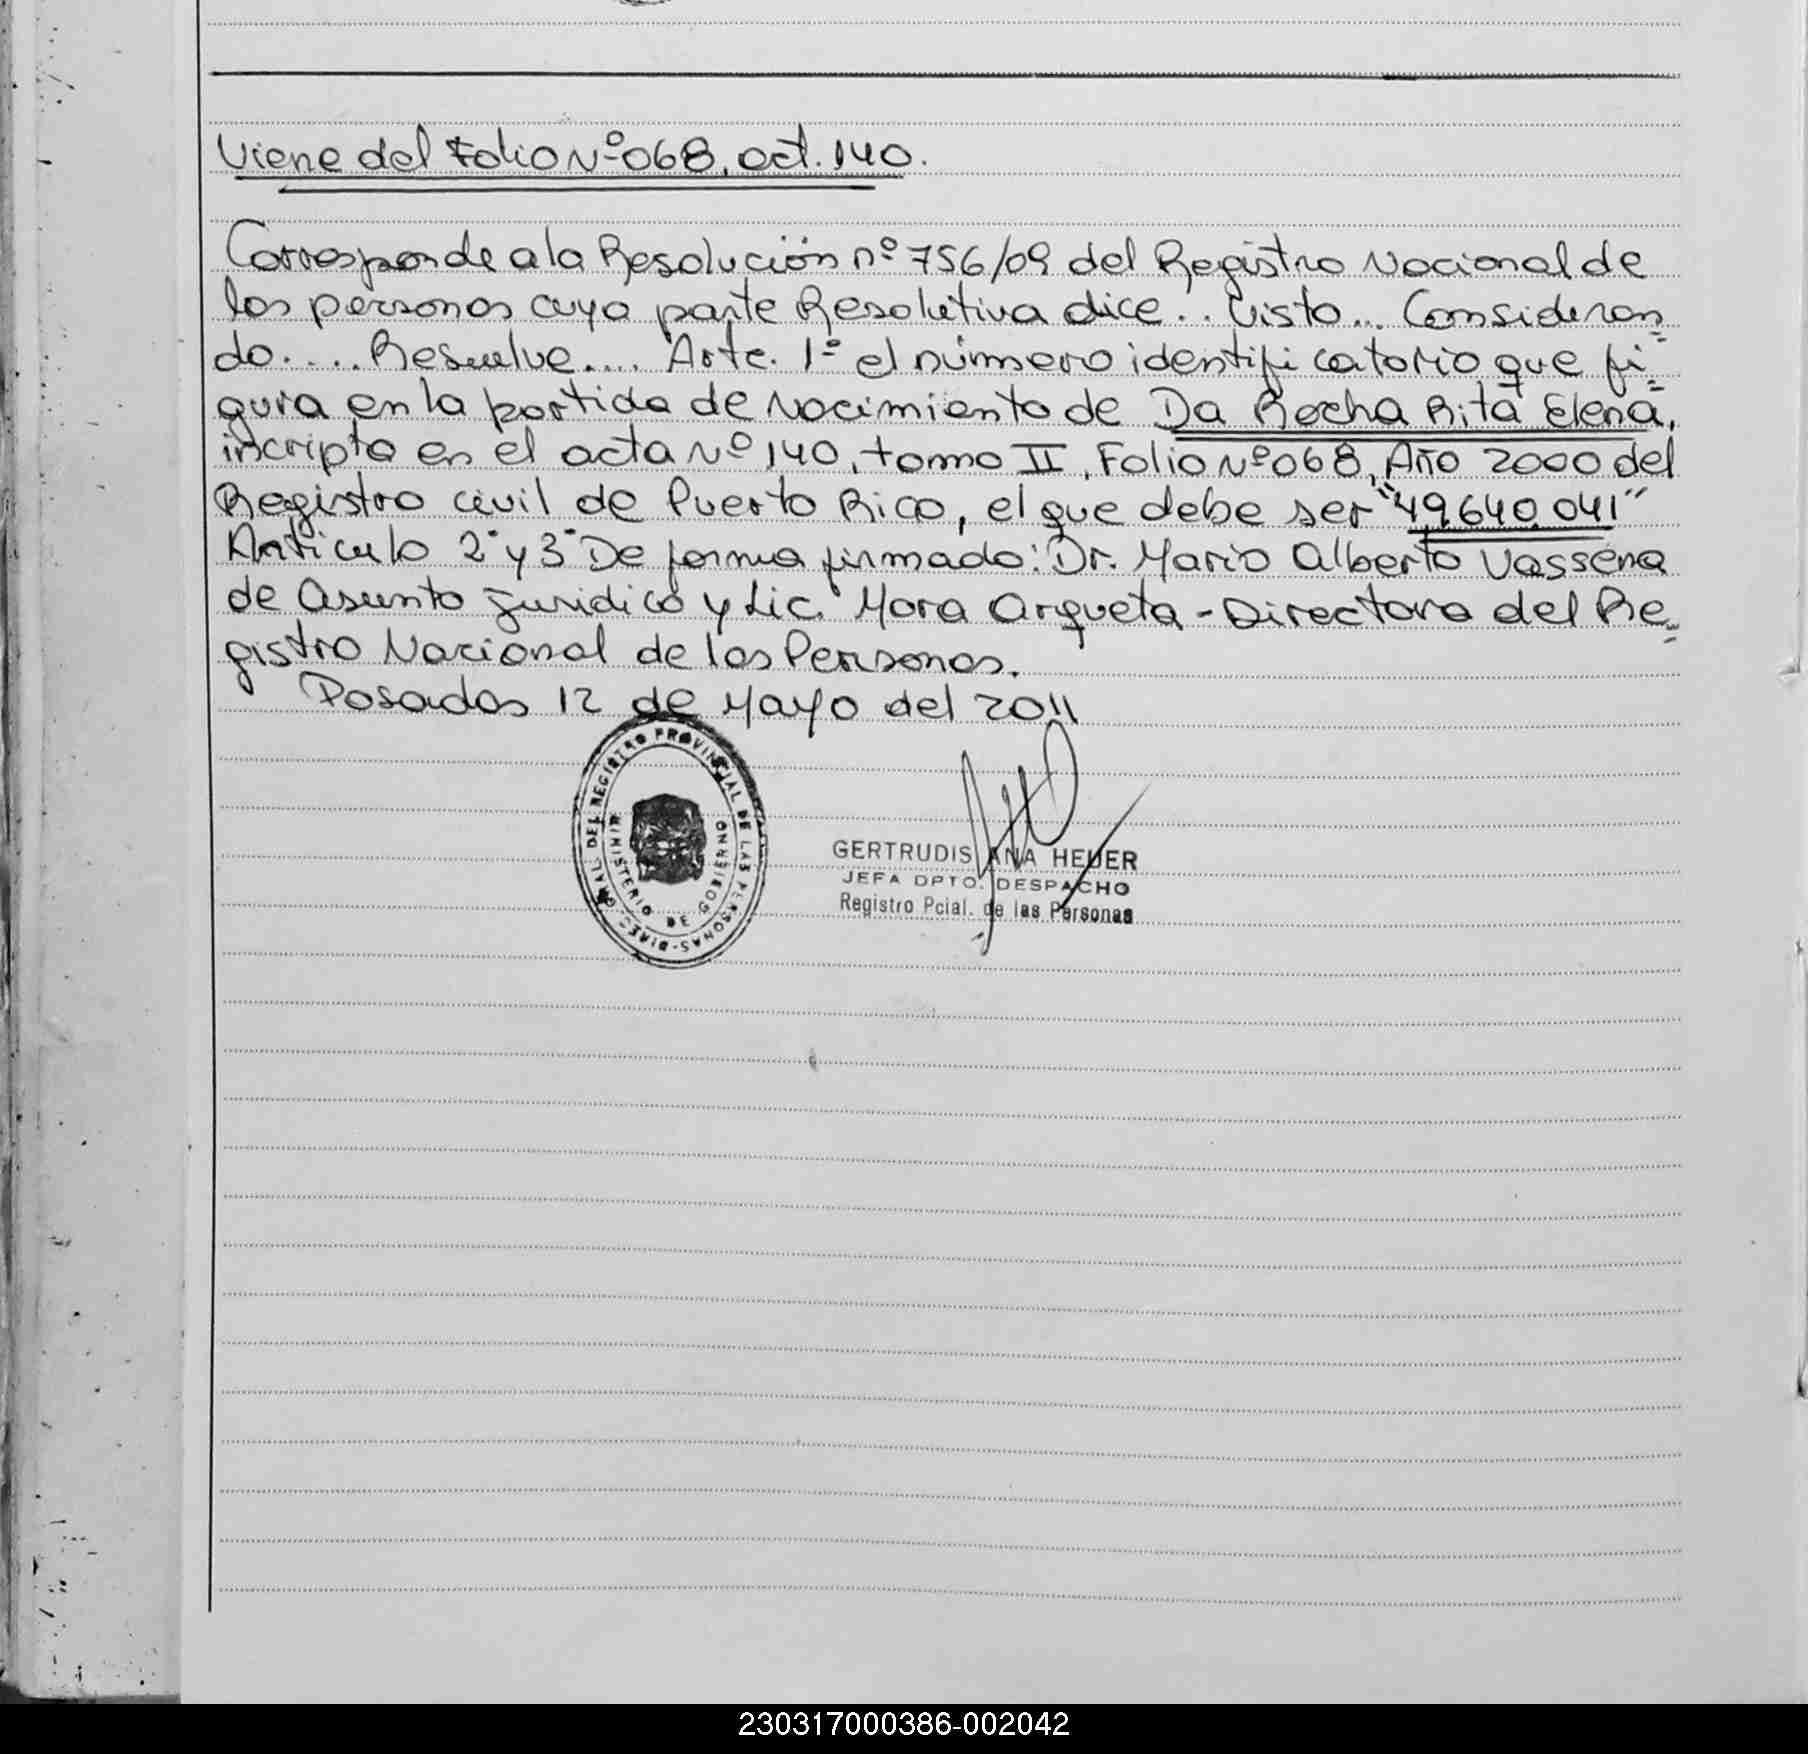 Viene del Folio Nº 068, act. 140.
Corresponde a la Resolución nº 756/09 del Registro Nacional de
las personas cuya parte Resolutiva dice.. Visto... Consideran
do.... Resuelve.... Arte. 1º el número identificatorio que fi
gura en la partida de nacimiento de Da Rocha Rita Elena,
inscripta en el acta Nº 140, tomo II, Folio Nº 068, Año 2000 del
Registro civil de Puerto Rico, el que debe ser "49.640.041"
Articulo 2º y 3º De forma firmado: Dr. Mario Alberto Vassena
de Asunto Juridico y Lic. Mora Arqueta - Directora del Re
gistro Nacional de las Personas.
Posadas 12 de Mayo del 2011
DIREC. GRAL. DEL REGISTRO PROVINCIAL DE LAS PERSONAS-
MINISTERIO DE GOBIERNO
GERTRUDIS ANA HEUER
JEFA DPTO. DESPACHO
Registro Pcial. de las Personas
230317000386-002042